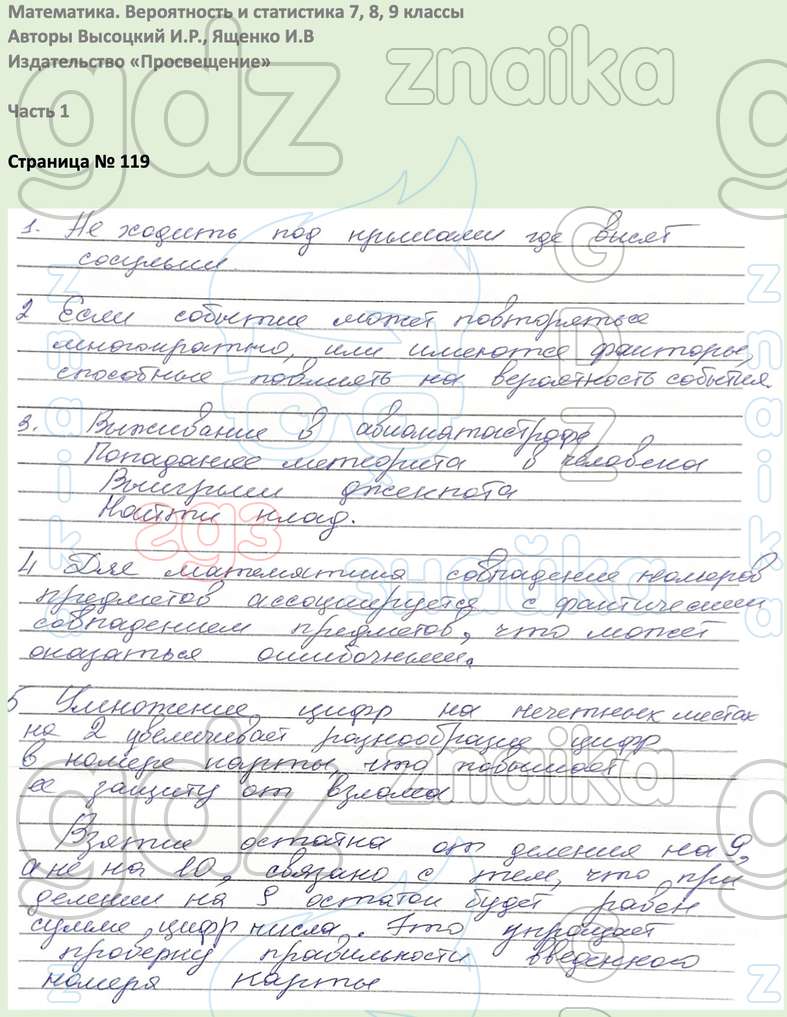 Математика. Вероятность и статистика 7, 8, 9 классы
Авторы Высоцкий И.Р., Ященко И.В
Издательство «Просвещение»
Часть 1
Страница № 119
gdz znaika
1. Не ходить под крышами где висят
сосульки.
2 Если событие может повторяться
многократно, или имеются факторы,
способные повлиять на вероятность события.
3. Выживание в авиакатастрофе
Попадание метеорита в человека
Выигрыш джекпота
Найти клад.
гдз знайка
4 Для математика совпадение номеров
предметов ассоциируется с фактическим
совпадением предметов, что может
оказаться ошибочным.
5 Умножение цифр на нечетных местах
на 2 увеличивает разнообразие цифр
в номере карты, что повышает
ее защиту от взлома
gdz znaika
Взятие остатка от деления на 9,
а не на 10, связано с тем, что при
делении на 9 остаток будет равен
сумме цифр числа. Это упрощает
проверку правильности введенного
номера карты